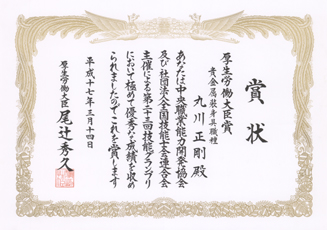 賞状
厚生労働大臣賞
貴金属装身具職種
九川正剛殿
あなたは中央職業能力開発協会
及び社団法人全国技能士会連合会
主催による第二十三回技能グランプリ
において極めて優秀な成績を収め
られましたのでこれを賞します
平成十七年三月十四日
厚生労働大臣 尾辻秀久